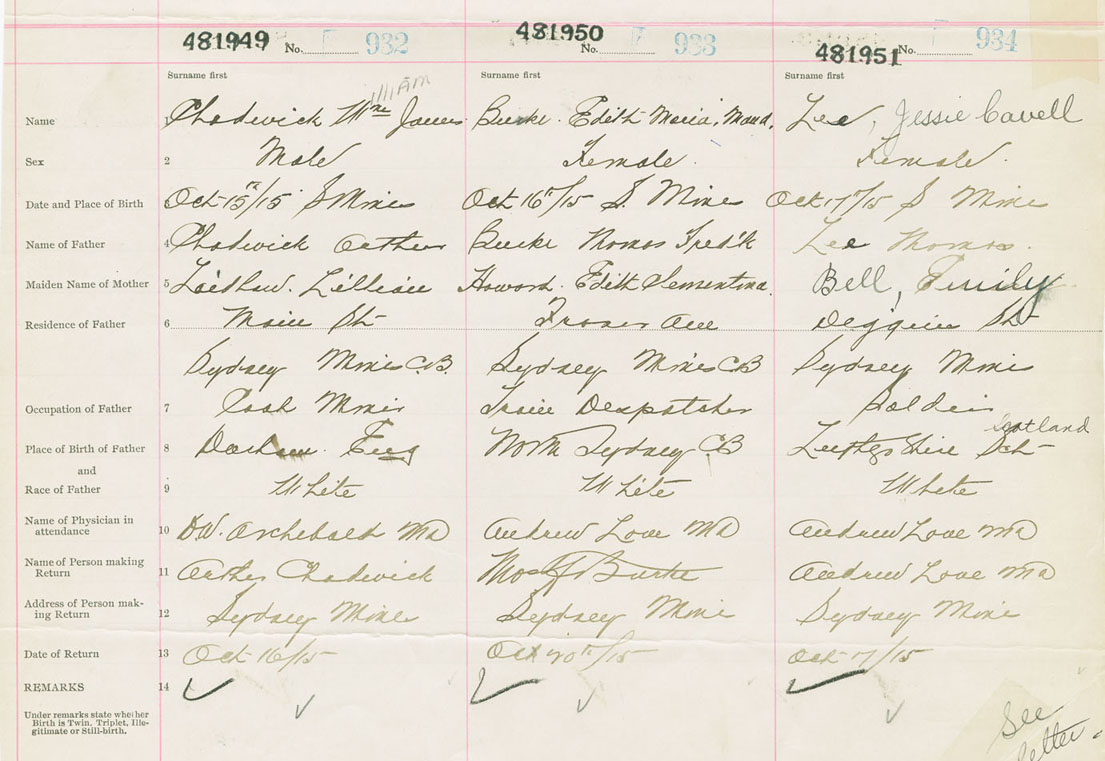 481949 No. 932 481950 No. 933 481951 No. 934
Surname first Surname first Surname first
Name 1 Chadwick Wm James Burke Edith Maria, Maud. Lee, Jessie Cavell
Sex 2 Male Female. Female.
Date and Place of Birth 3 Oct 15th/15 S Mines Oct 16th/15 S Mines Oct 17th/15 S Mines
Name of Father 4 Chadwick Arthur Burke Thomas Fred'k Lee Thomas.
Maiden Name of Mother 5 Laidlaw. Lillian Howard. Edith Clementina. Bell, Emily
Residence of Father 6 Main St Fraser Ave St
Sydney Mines C.B. Sydney Mines CB Sydney Mines
Occupation of Father 7 Coal Miner Train Despatcher Soldier
Place of Birth of Father 8 Durham Eng North Sydney CB Scotland
and
Race of Father 9 White White White
Name of Physician in
attendance 10 DW. Archibald MD Andrew Love MD Andrew Love MD
Name of Person making
Return 11 Arthur Chadwick Burke Andrew Love MD
Address of Person mak-
ing Return 12 Sydney Mines Sydney Mines Sydney Mines
Date of Return 13 Oct 16/15 Oct 20th/15 Oct 17/15
REMARKS 14
Under remarks state whether
Birth is Twin, Triplet, Ille-
gitimate or Still-birth.
See
letter.